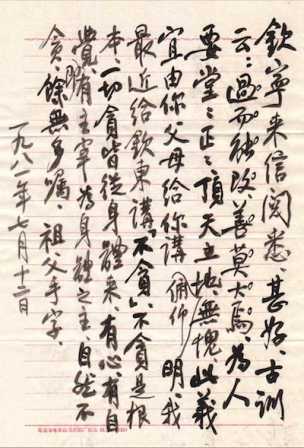 欽寧来信閱悉、甚好、古訓
云：過而能改善莫大焉、為人
要堂々正々頂天立地無愧、此義
宜由你父母給你講明、我
最近給欽東講“不貪”不貪是根
本、一切貪皆從身體来、有心有自
覺、有主宰為身體之主、自然不
貪、餘無多囑、祖父手字、
一九八一年七月十二日